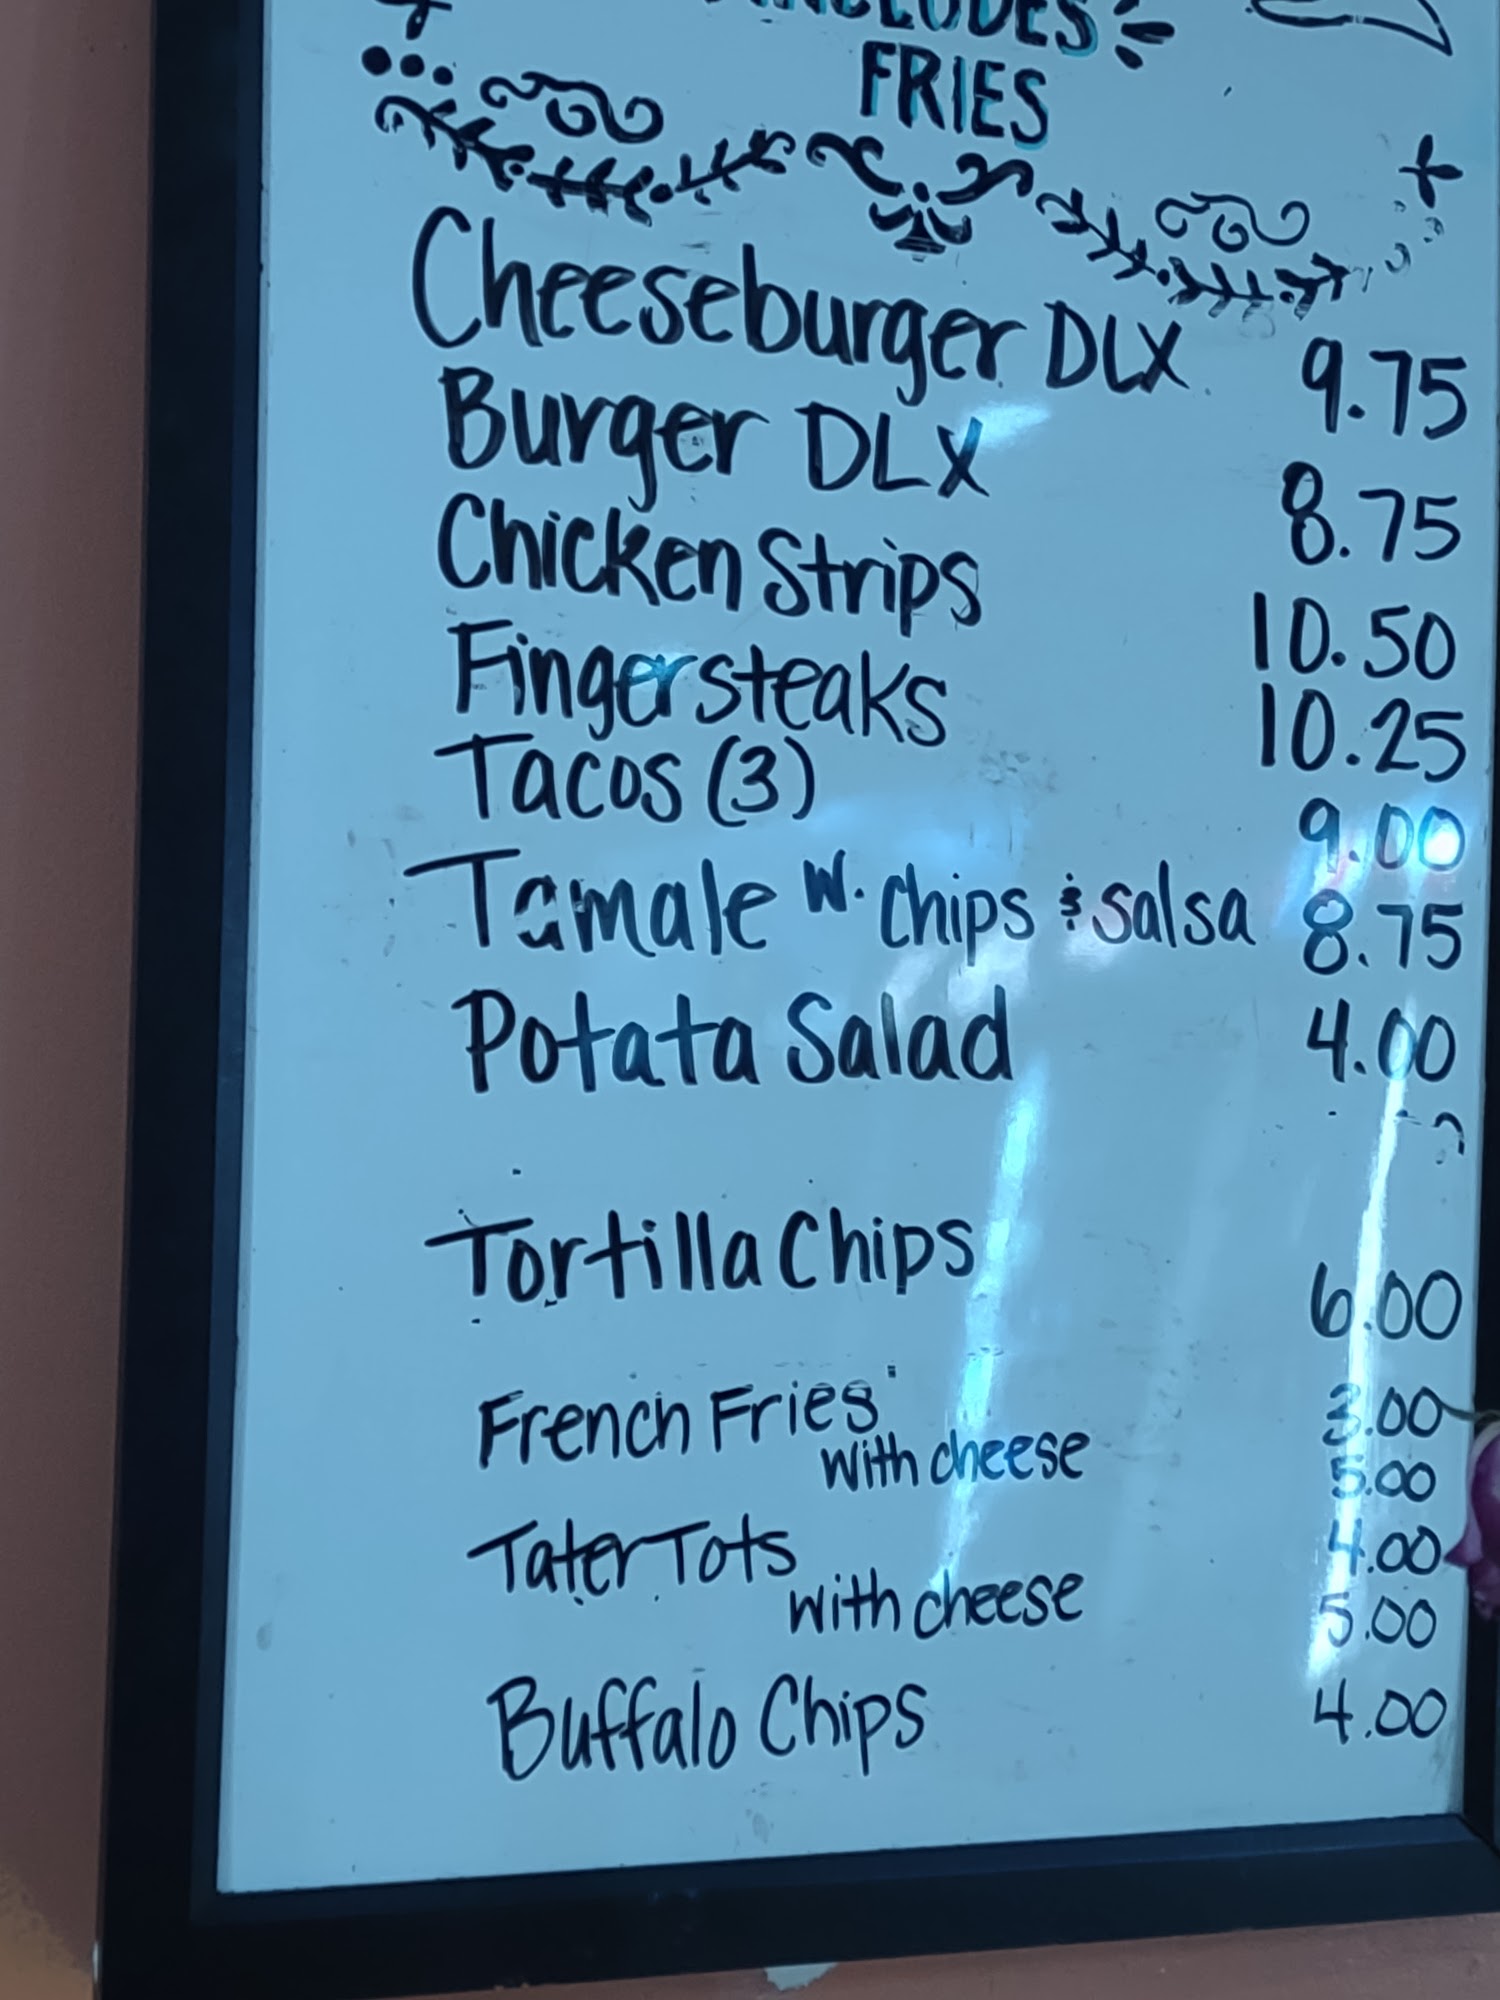 INCLUDES
FRIES
Cheeseburger DLX 9.75
Burger DLX 8.75
Chicken Strips 10.50
Fingersteaks 10.25
Tacos (3) 9.00
Tamale w. chips & salsa 8.75
Potata Salad 4.00
Tortilla Chips 6.00
French Fries 3.00
with cheese 5.00
Tater Tots 4.00
with cheese 5.00
Buffalo Chips 4.00